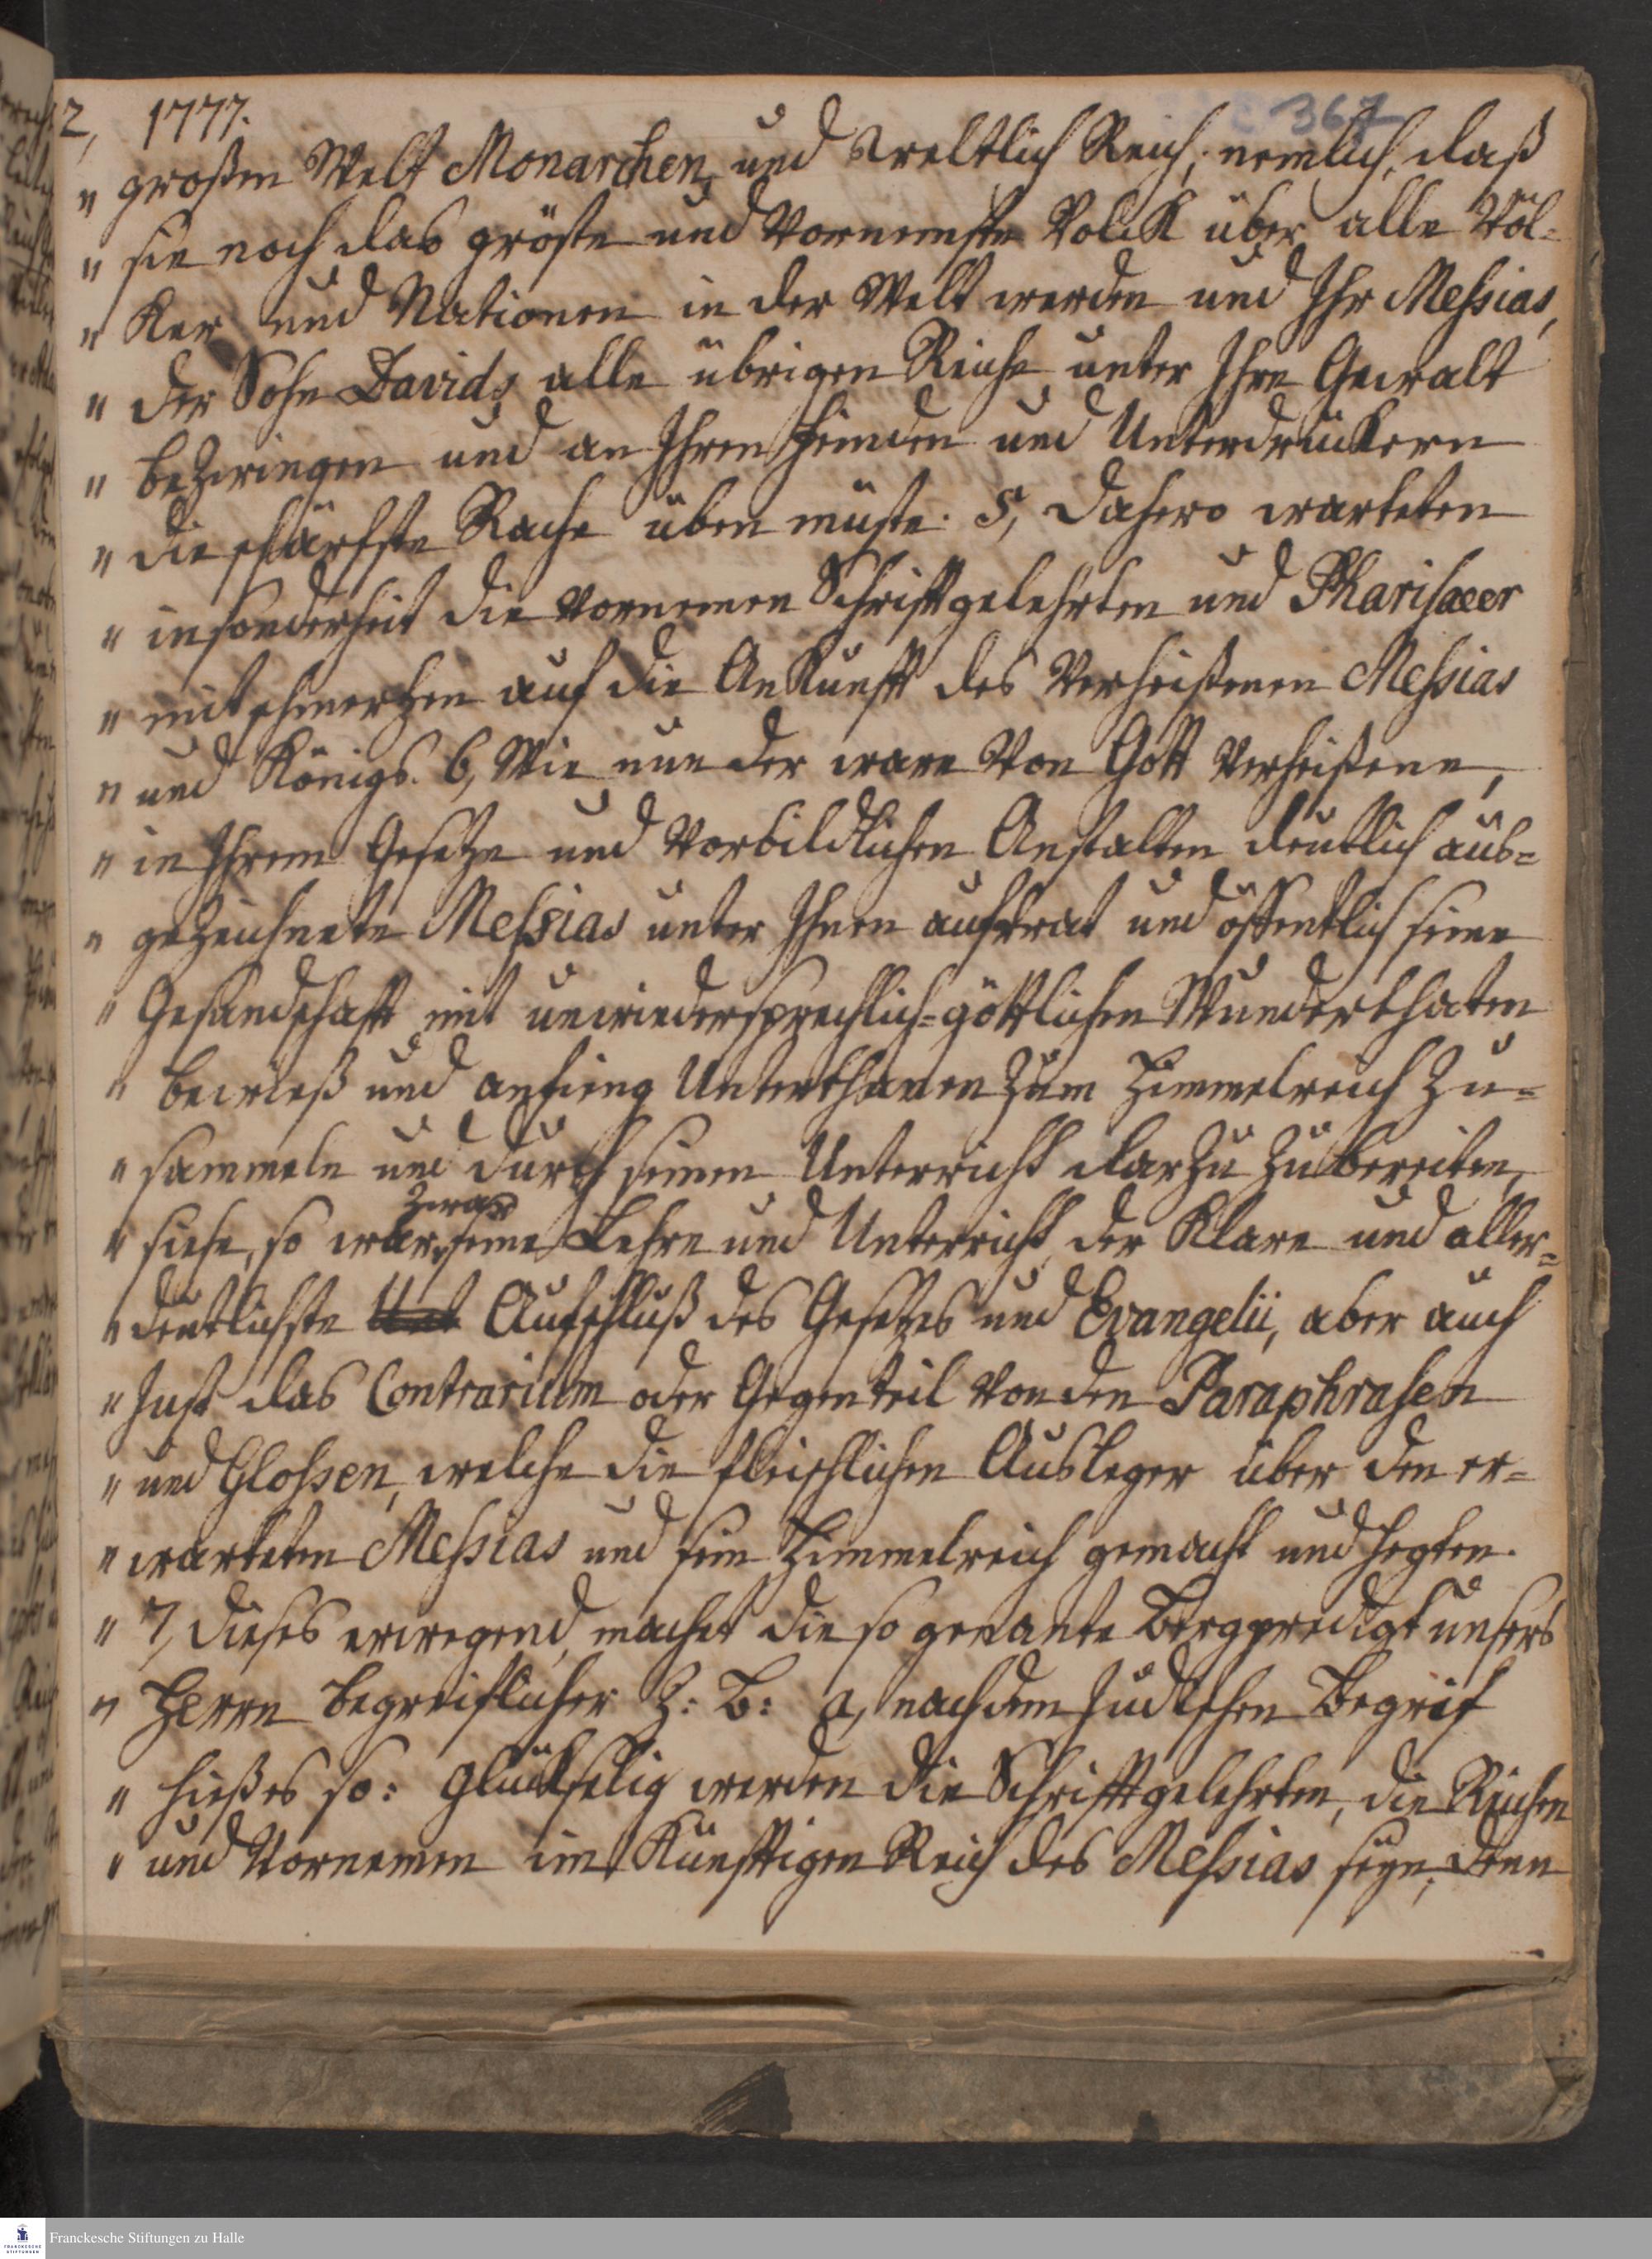 2, 1777.
367
" großen Welt Monarchen, und Weltlich Reich; nemlich, daß
" sie noch das gröste und Vornemste Volck über alle Völ-
" ker und Nationen in der Welt werden und Ihr Messias,
" der Sohn Davids alle übrigen Reiche unter Ihre Gewalt
" bezwingen und an Ihren Feinden und Unterdrückern
" die schärfste Rache üben müste. 5, Dahero warteten
" insonderheit die Vornemen Schriftgelehrten und Pharisaeer
" mit schmertzen auf die Ankunft des Verheißenen Messias
" und Königs. 6, Wie nun der ware Von Gott Verheißene,
" in Ihrem Gesetze und Vorbildlichen Anstalten deutlich aus-
" gezeichnete Messias unter Ihnen auftrat und öffentlich seine
" Gesandschaft mit unwiedersprechlich-göttlichen Wunderthaten
" bewieß und anfieng Unterthanen zum Himmelreich zu-
" sammeln und durch seinen Unterricht darzu zubereiten,
zwar
" siehe, so war seine Lehre und Unterricht der Klare und aller-
" deutlichste Aufschluß des Gesetzes und Evangelii, aber auch
" Just das Contrarium oder Gegenteil Von den Paraphrasen
" und Glossen, welche die fleischlichen Ausleger über den er-
" warteten Messias und sein Himmelreich gemacht und hegten.
" 7, Dieses erwegend, machet die so genante Bergpredigt unsers
" Herrn begreiflicher Z: B: a, nach dem Judischen Begrif
" hieß es so: Glückselig werden die Schriftgelehrten, die Reichen
" und Vornemen im Künftigen Reich des Messias seyn; denn
Franckesche Stiftungen zu Halle